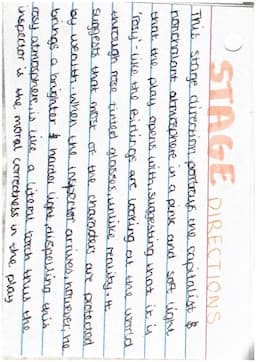 STAGE DIRECTIONS
This stage direction portrays the capitalist &
nonchalant atmosphere in a pink and soft light
that the play opens with, suggesting that it is
'rosy' - like the Birlings are looking at the world
through rose tinted glasses, unlike reality. It
suggests that most of the characters are protected
by wealth. When the inspector arrives, however, he
brings a brighter & harder light, dispelling this
rosy atmosphere, is like a literal torch thus the
inspector is the moral correctness in the play